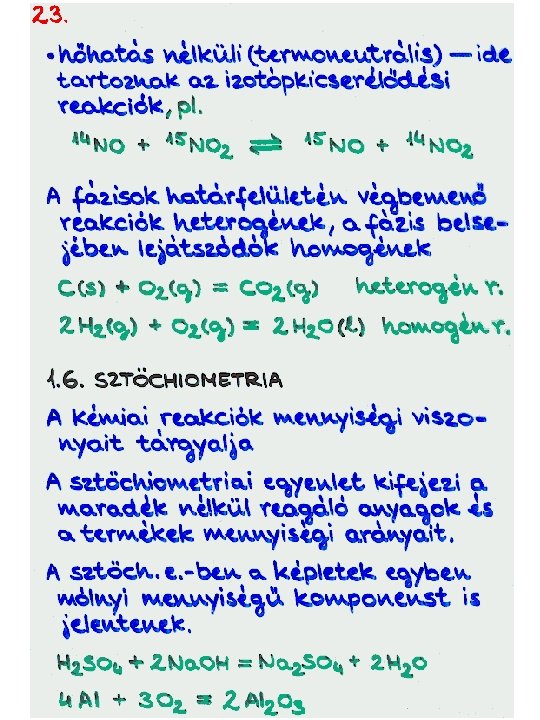 23.
• hőhatás nélküli (termoneutrális) — ide
tartoznak az izotópkicserélődési
reakciók, pl.
¹⁴NO + ¹⁵NO₂ ⇌ ¹⁵NO + ¹⁴NO₂
A fázisok határfelületén végbemenő
reakciók heterogének, a fázis belse-
jében lejátszódók homogének
C(s) + O₂(g) = CO₂(g) heterogén r.
2H₂(g) + O₂(g) = 2H₂O(l) homogén r.
1.6. SZTÖCHIOMETRIA
A kémiai reakciók mennyiségi viszo-
nyait tárgyalja
A sztöchiometriai egyenlet kifejezi a
maradék nélkül reagáló anyagok és
a termékek mennyiségi arányait.
A sztöch. e.-ben a képletek egyben
mólnyi mennyiségű komponenst is
jelentenek.
H₂SO₄ + 2NaOH = Na₂SO₄ + 2H₂O
4Al + 3O₂ = 2Al₂O₃